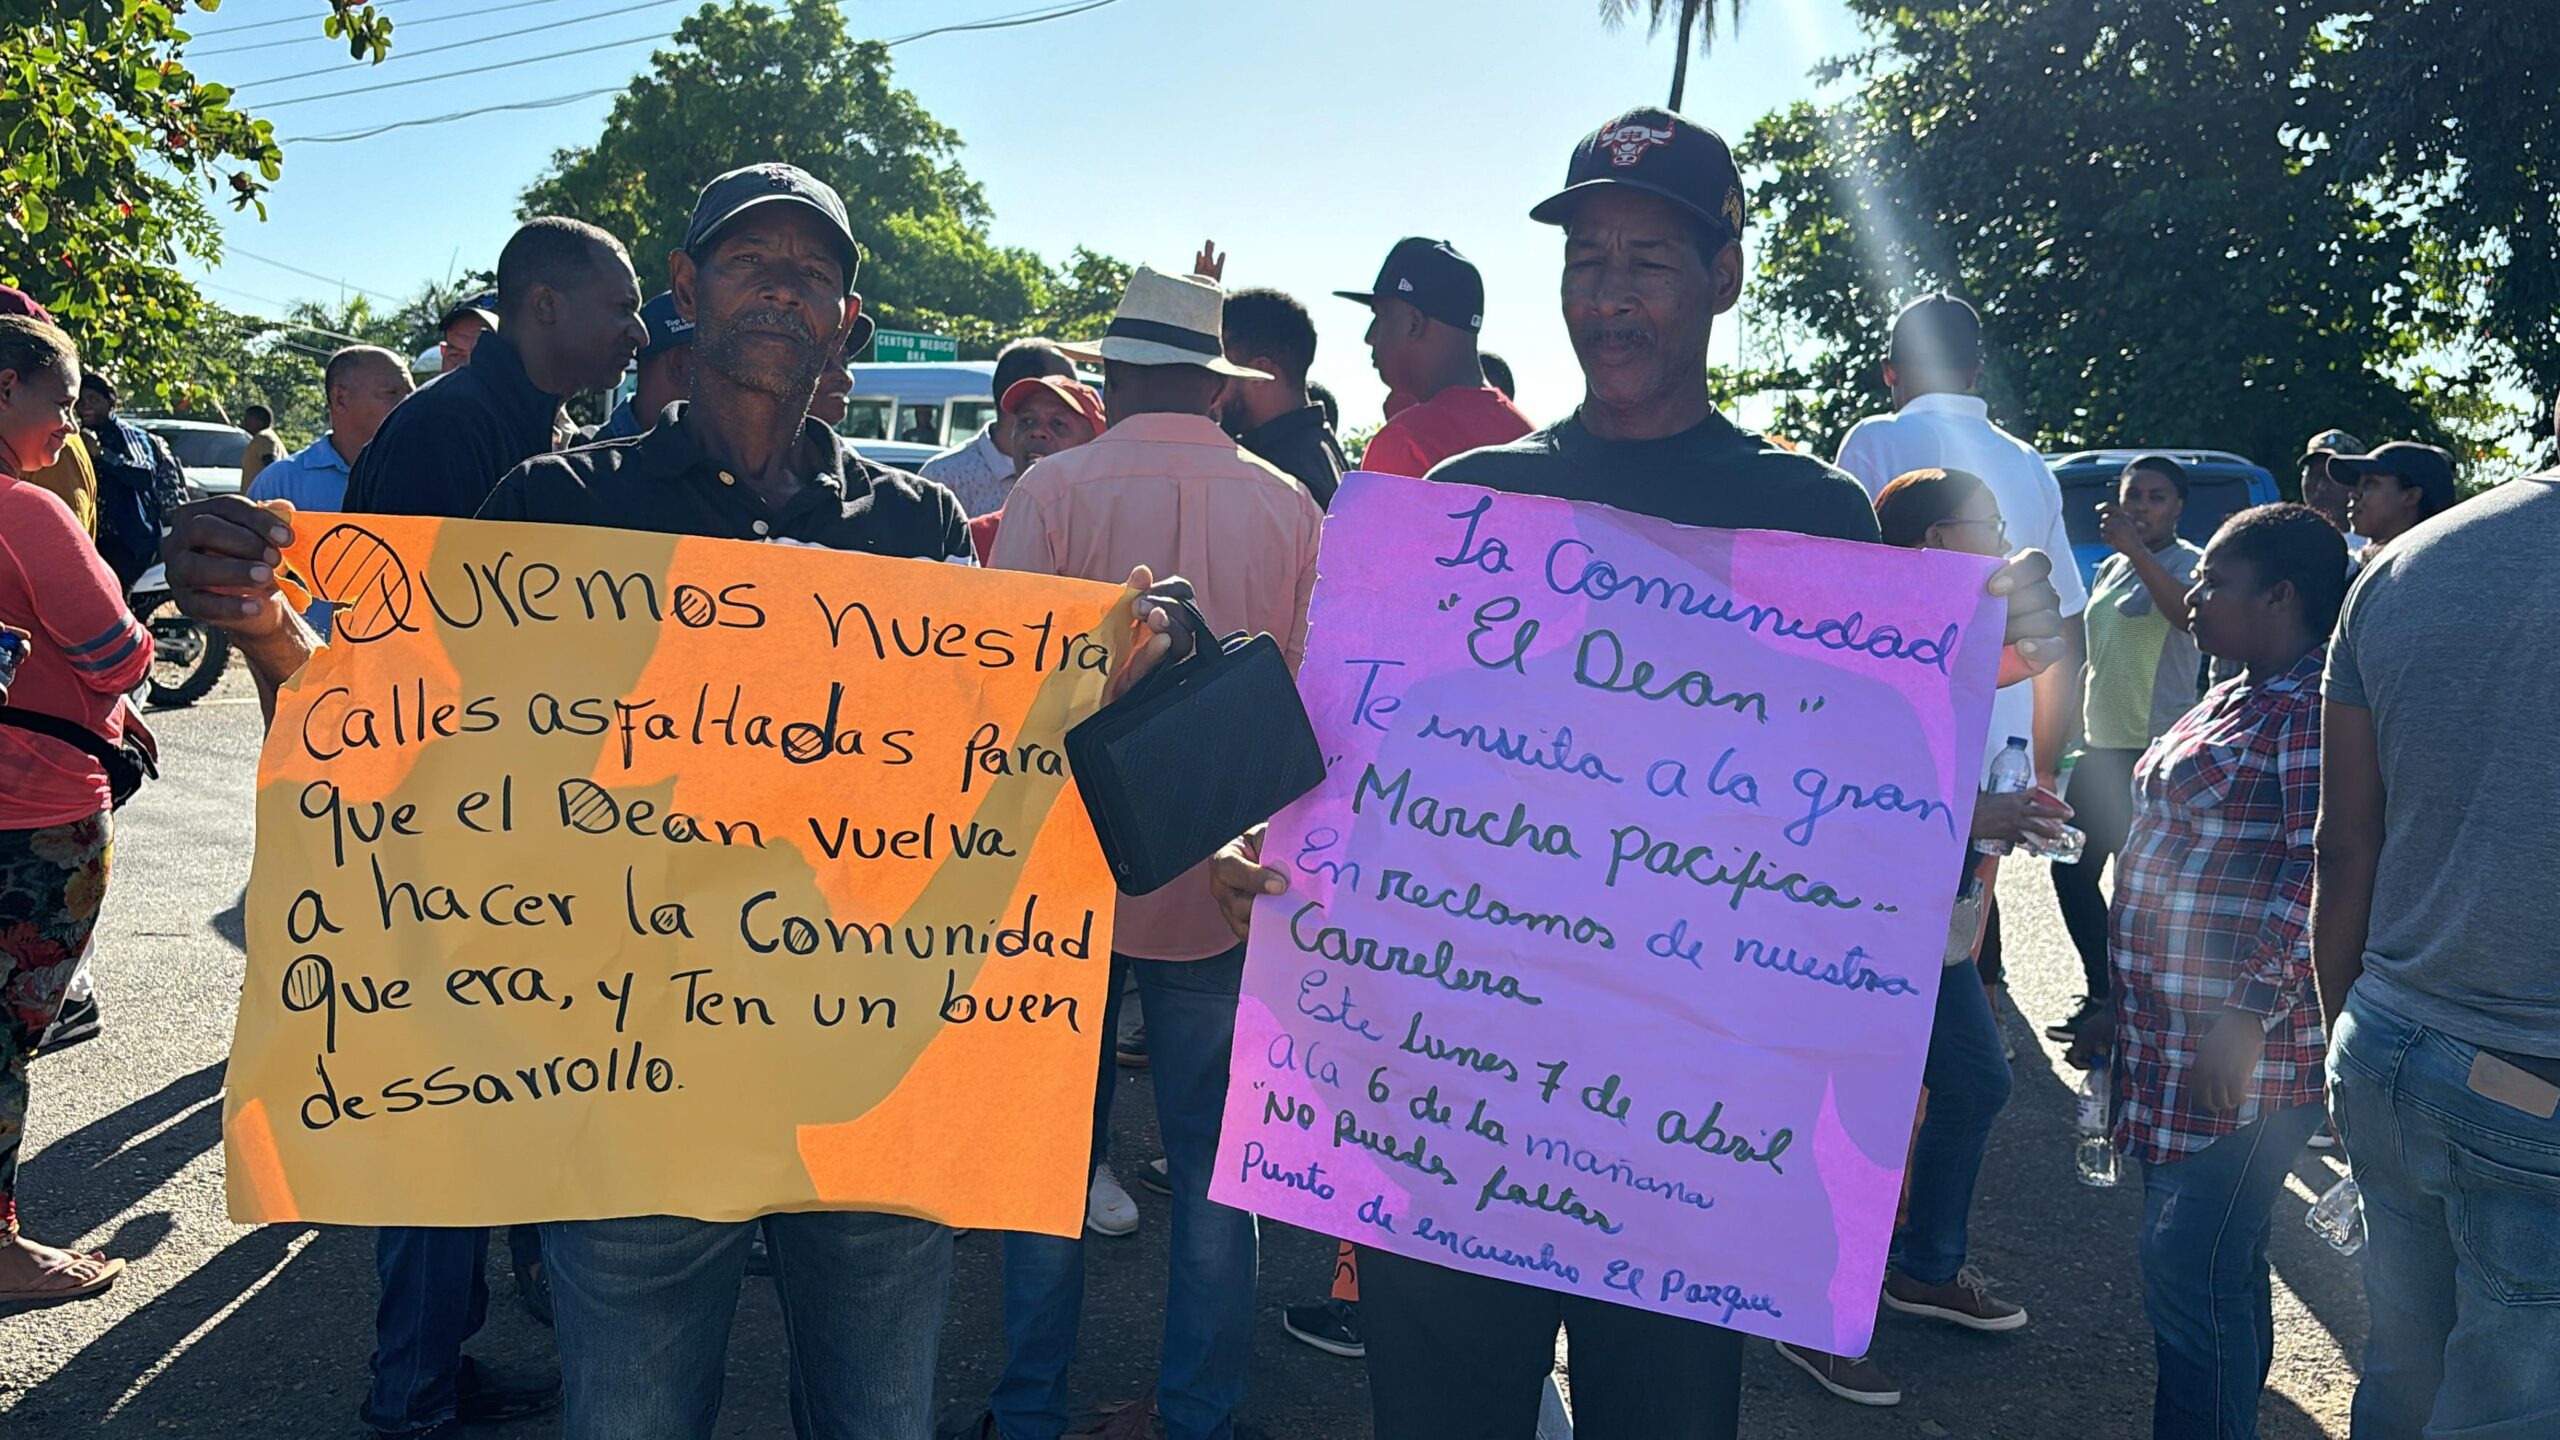 Quremos nuestra
Calles asfaltadas para
que el Dean vuelva
a hacer la Comunidad
Que era, y Ten un buen
dessarrollo.
La Comunidad
"El Dean"
Te invita a la gran
"Marcha pacifica"
En reclamos de nuestra
Carretera
Este lunes 7 de abril
a la 6 de la mañana
"No Puedes faltar
Punto de encuentro El Parque
CENTRO MEDICO